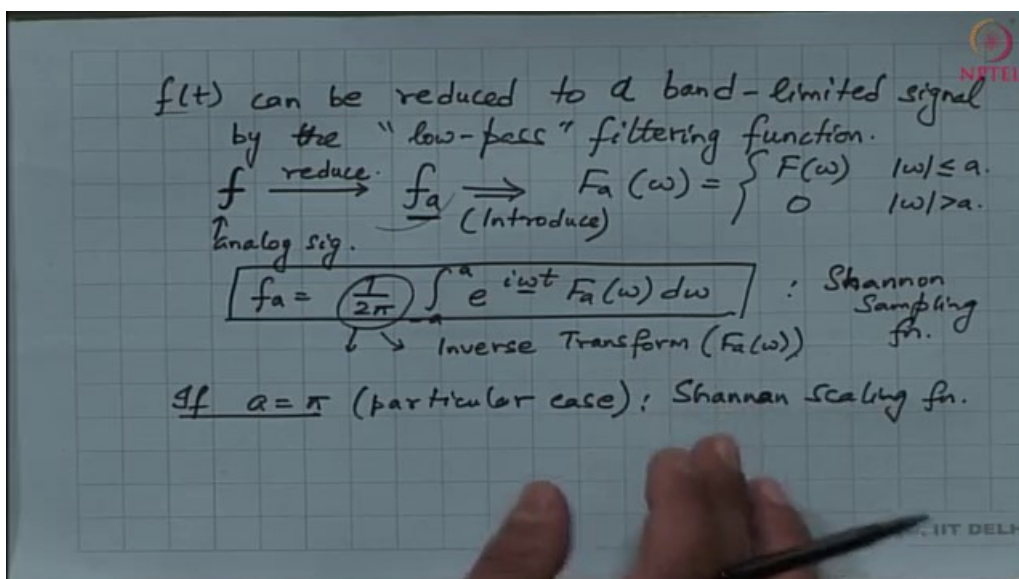 f(t) can be reduced to a band-limited signal
by the "low-pass" filtering function.
f reduce. → f_a ⟹ F_a(ω) = { F(ω) |ω| ≤ a.
(Introduce) 0 |ω| > a.
analog sig.
f_a = 1/2π ∫_{-a}^{a} e^{iωt} F_a(ω) dω : Shannon
Sampling
fn.
Inverse Transform (F_a(ω))
If a = π (particular case): Shannan scaling fn.
NPTEL
IIT DELH